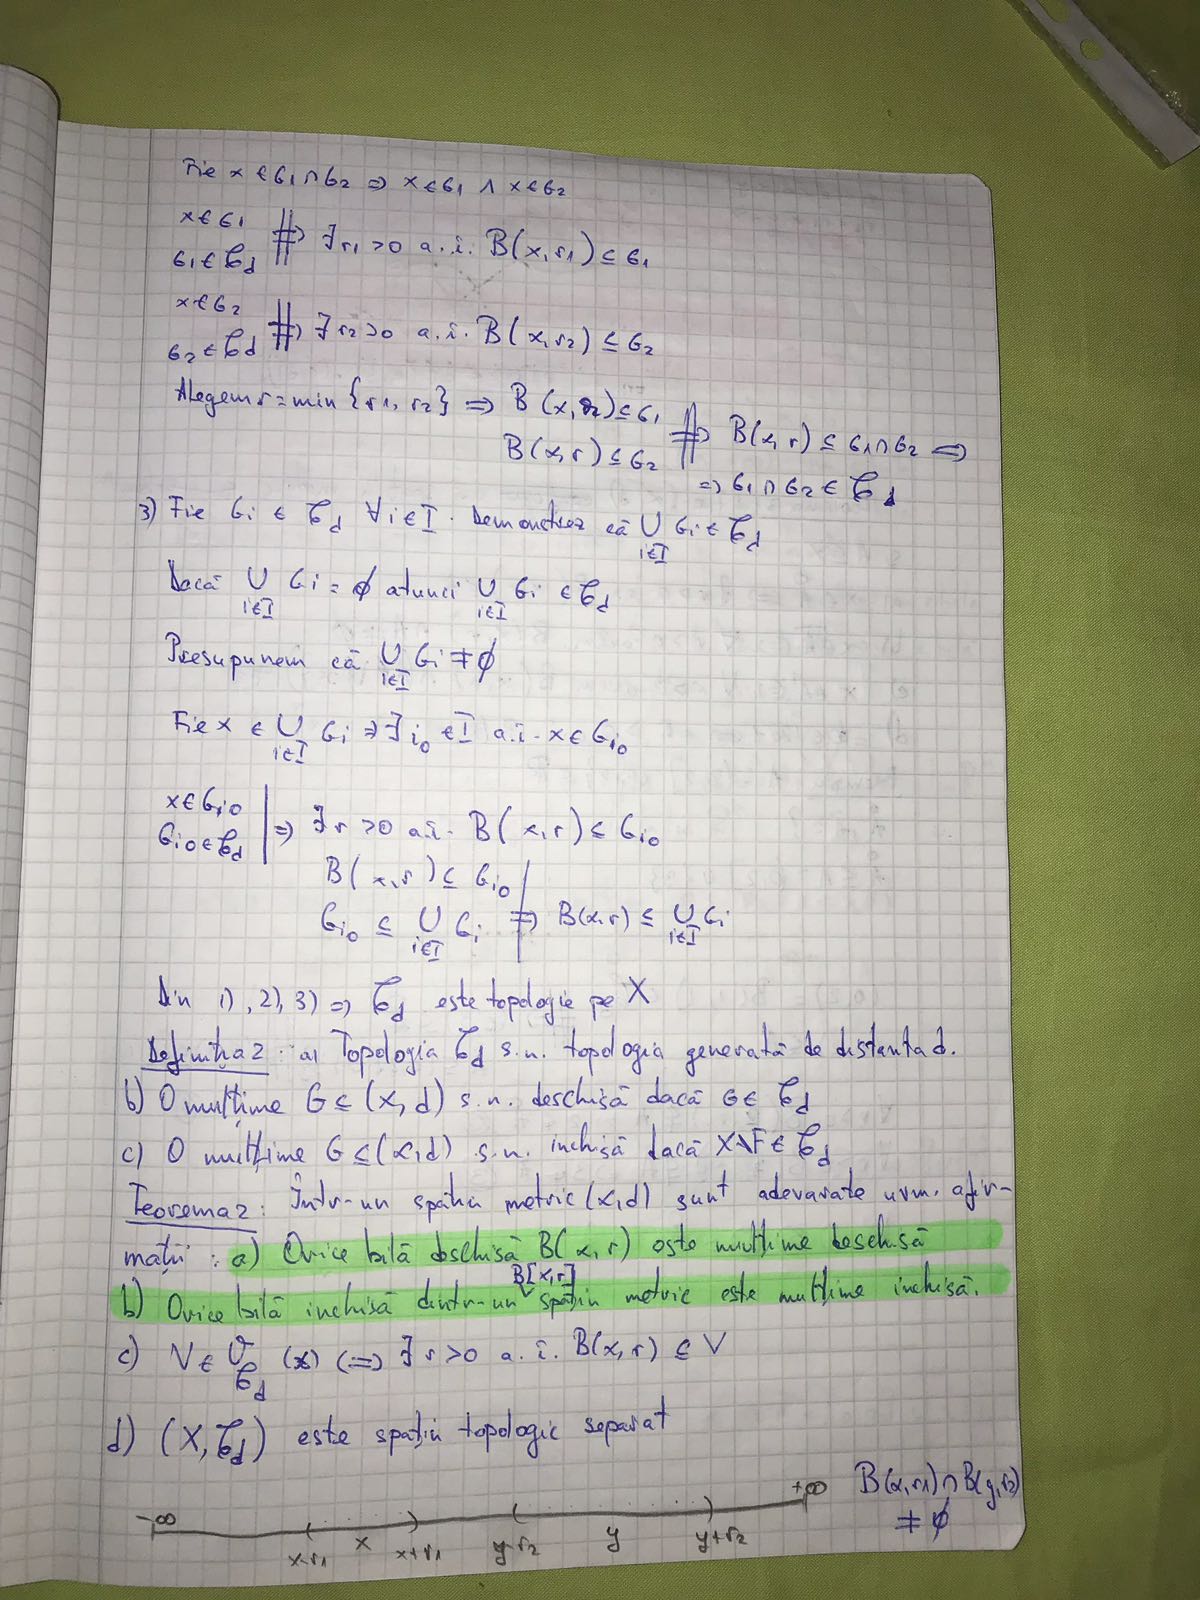 Fie x ∈ G₁ ∩ G₂ ⇒ x ∈ G₁ ∧ x ∈ G₂
x ∈ G₁
G₁ ∈ 𝒯d ⇒ ∃ r₁ > 0 a.î. B(x, r₁) ⊆ G₁
x ∈ G₂
G₂ ∈ 𝒯d ⇒ ∃ r₂ > 0 a.î. B(x, r₂) ⊆ G₂
Alegem r = min {r₁, r₂} ⇒ B(x, r) ⊆ G₁
B(x, r) ⊆ G₂ ⇒ B(x, r) ⊆ G₁ ∩ G₂ ⇒
⇒ G₁ ∩ G₂ ∈ 𝒯d
3) Fie Gi ∈ 𝒯d ∀ i ∈ I. Demonstrez că ∪ i∈I Gi ∈ 𝒯d
Dacă ∪ i∈I Gi = ∅ atunci ∪ i∈I Gi ∈ 𝒯d
Presupunem că ∪ i∈I Gi ≠ ∅
Fie x ∈ ∪ i∈I Gi ⇒ ∃ i₀ ∈ I a.î. x ∈ Gi₀
x ∈ Gi₀
Gi₀ ∈ 𝒯d | ⇒ ∃ r > 0 a.î. B(x, r) ⊆ Gi₀
B(x, r) ⊆ Gi₀
Gi₀ ⊆ ∪ i∈I Gi | ⇒ B(x, r) ⊆ ∪ i∈I Gi
Din 1), 2), 3) ⇒ 𝒯d este topologie pe X
Definiția 2: a) Topologia 𝒯d s.n. topologia generată de distanta d.
b) O mulțime G ⊆ (X, d) s.n. deschisă dacă G ∈ 𝒯d
c) O mulțime G ⊆ (X, d) s.n. inchisă dacă X\F ∈ 𝒯d
Teorema 2: Într-un spațiu metric (X, d) sunt adevarate urm. afir-
mații: a) Orice bilă deschisă B(x, r) este mulțime deschisă
B[x, r]
b) Orice bilă inchisă dintr-un spațiu metric este mulțime inchisă.
c) V ∈ 𝒱𝒯d (x) (⇒) ∃ r > 0 a.î. B(x, r) ⊆ V
d) (X, 𝒯d) este spațiu topologic separat
-∞ x-r₁ x x+r₁ y-r₂ y y+r₂ +∞
B(x, r₁) ∩ B(y, r₂)
≠ ∅